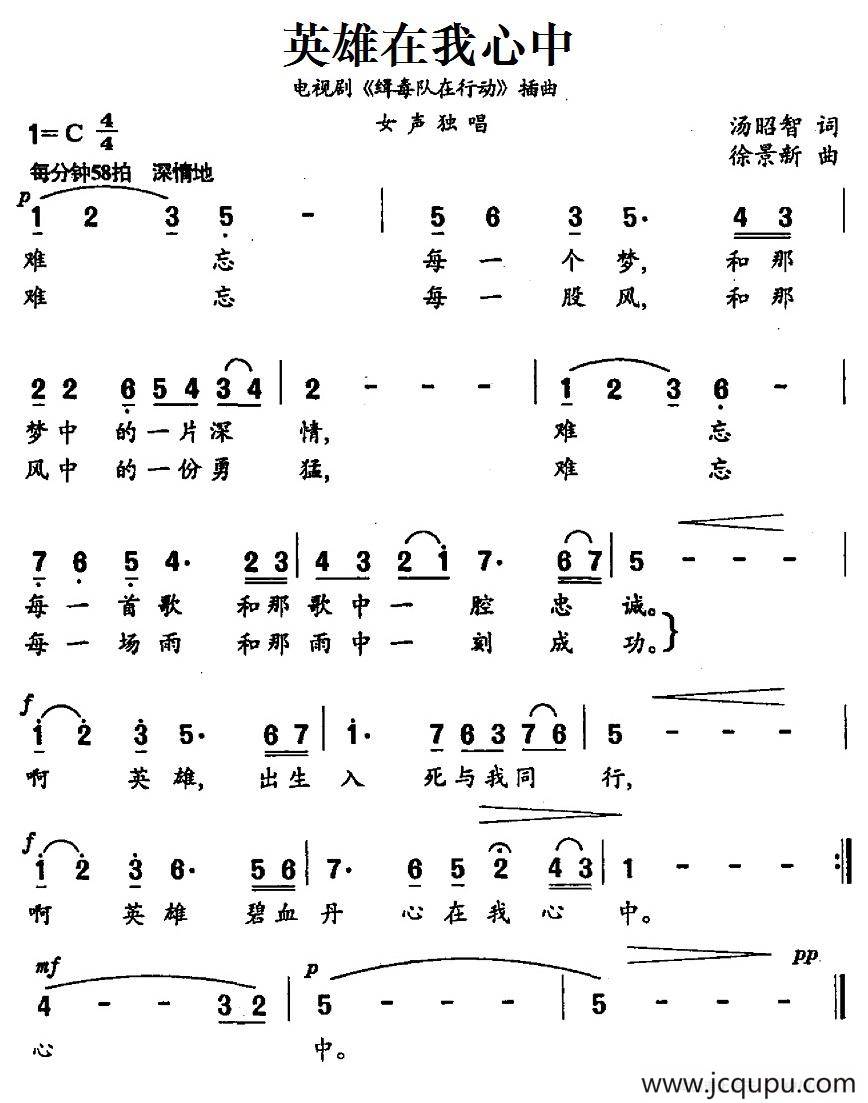 英雄在我心中
电视剧《缉毒队在行动》插曲
女声独唱
1=C 4/4
汤昭智 词
徐景新 曲
每分钟58拍 深情地
p
1 2 3 5 - | 5 6 3 5· 4 3 |
难 忘 每 一 个 梦, 和 那
难 忘 每 一 股 风, 和 那
2 2 6 5 4 3 4 | 2 - - - | 1 2 3 6 - |
梦 中 的 一 片 深 情, 难 忘
风 中 的 一 份 勇 猛, 难 忘
7 6 5 4· 2 3 | 4 3 2 1 7· 6 7 | 5 - - - |
每 一 首 歌 和 那 歌 中 一 腔 忠 诚。
每 一 场 雨 和 那 雨 中 一 刻 成 功。}
f
1 2 3 5· 6 7 | 1· 7 6 3 7 6 | 5 - - - |
啊 英 雄, 出 生 入 死 与 我 同 行,
f
1 2 3 6· 5 6 | 7· 6 5 2 4 3 | 1 - - - :|
啊 英 雄 碧 血 丹 心 在 我 心 中。
mf p pp
4 - - 3 2 | 5 - - - | 5 - - - |
心 中。
www.jcqupu.com